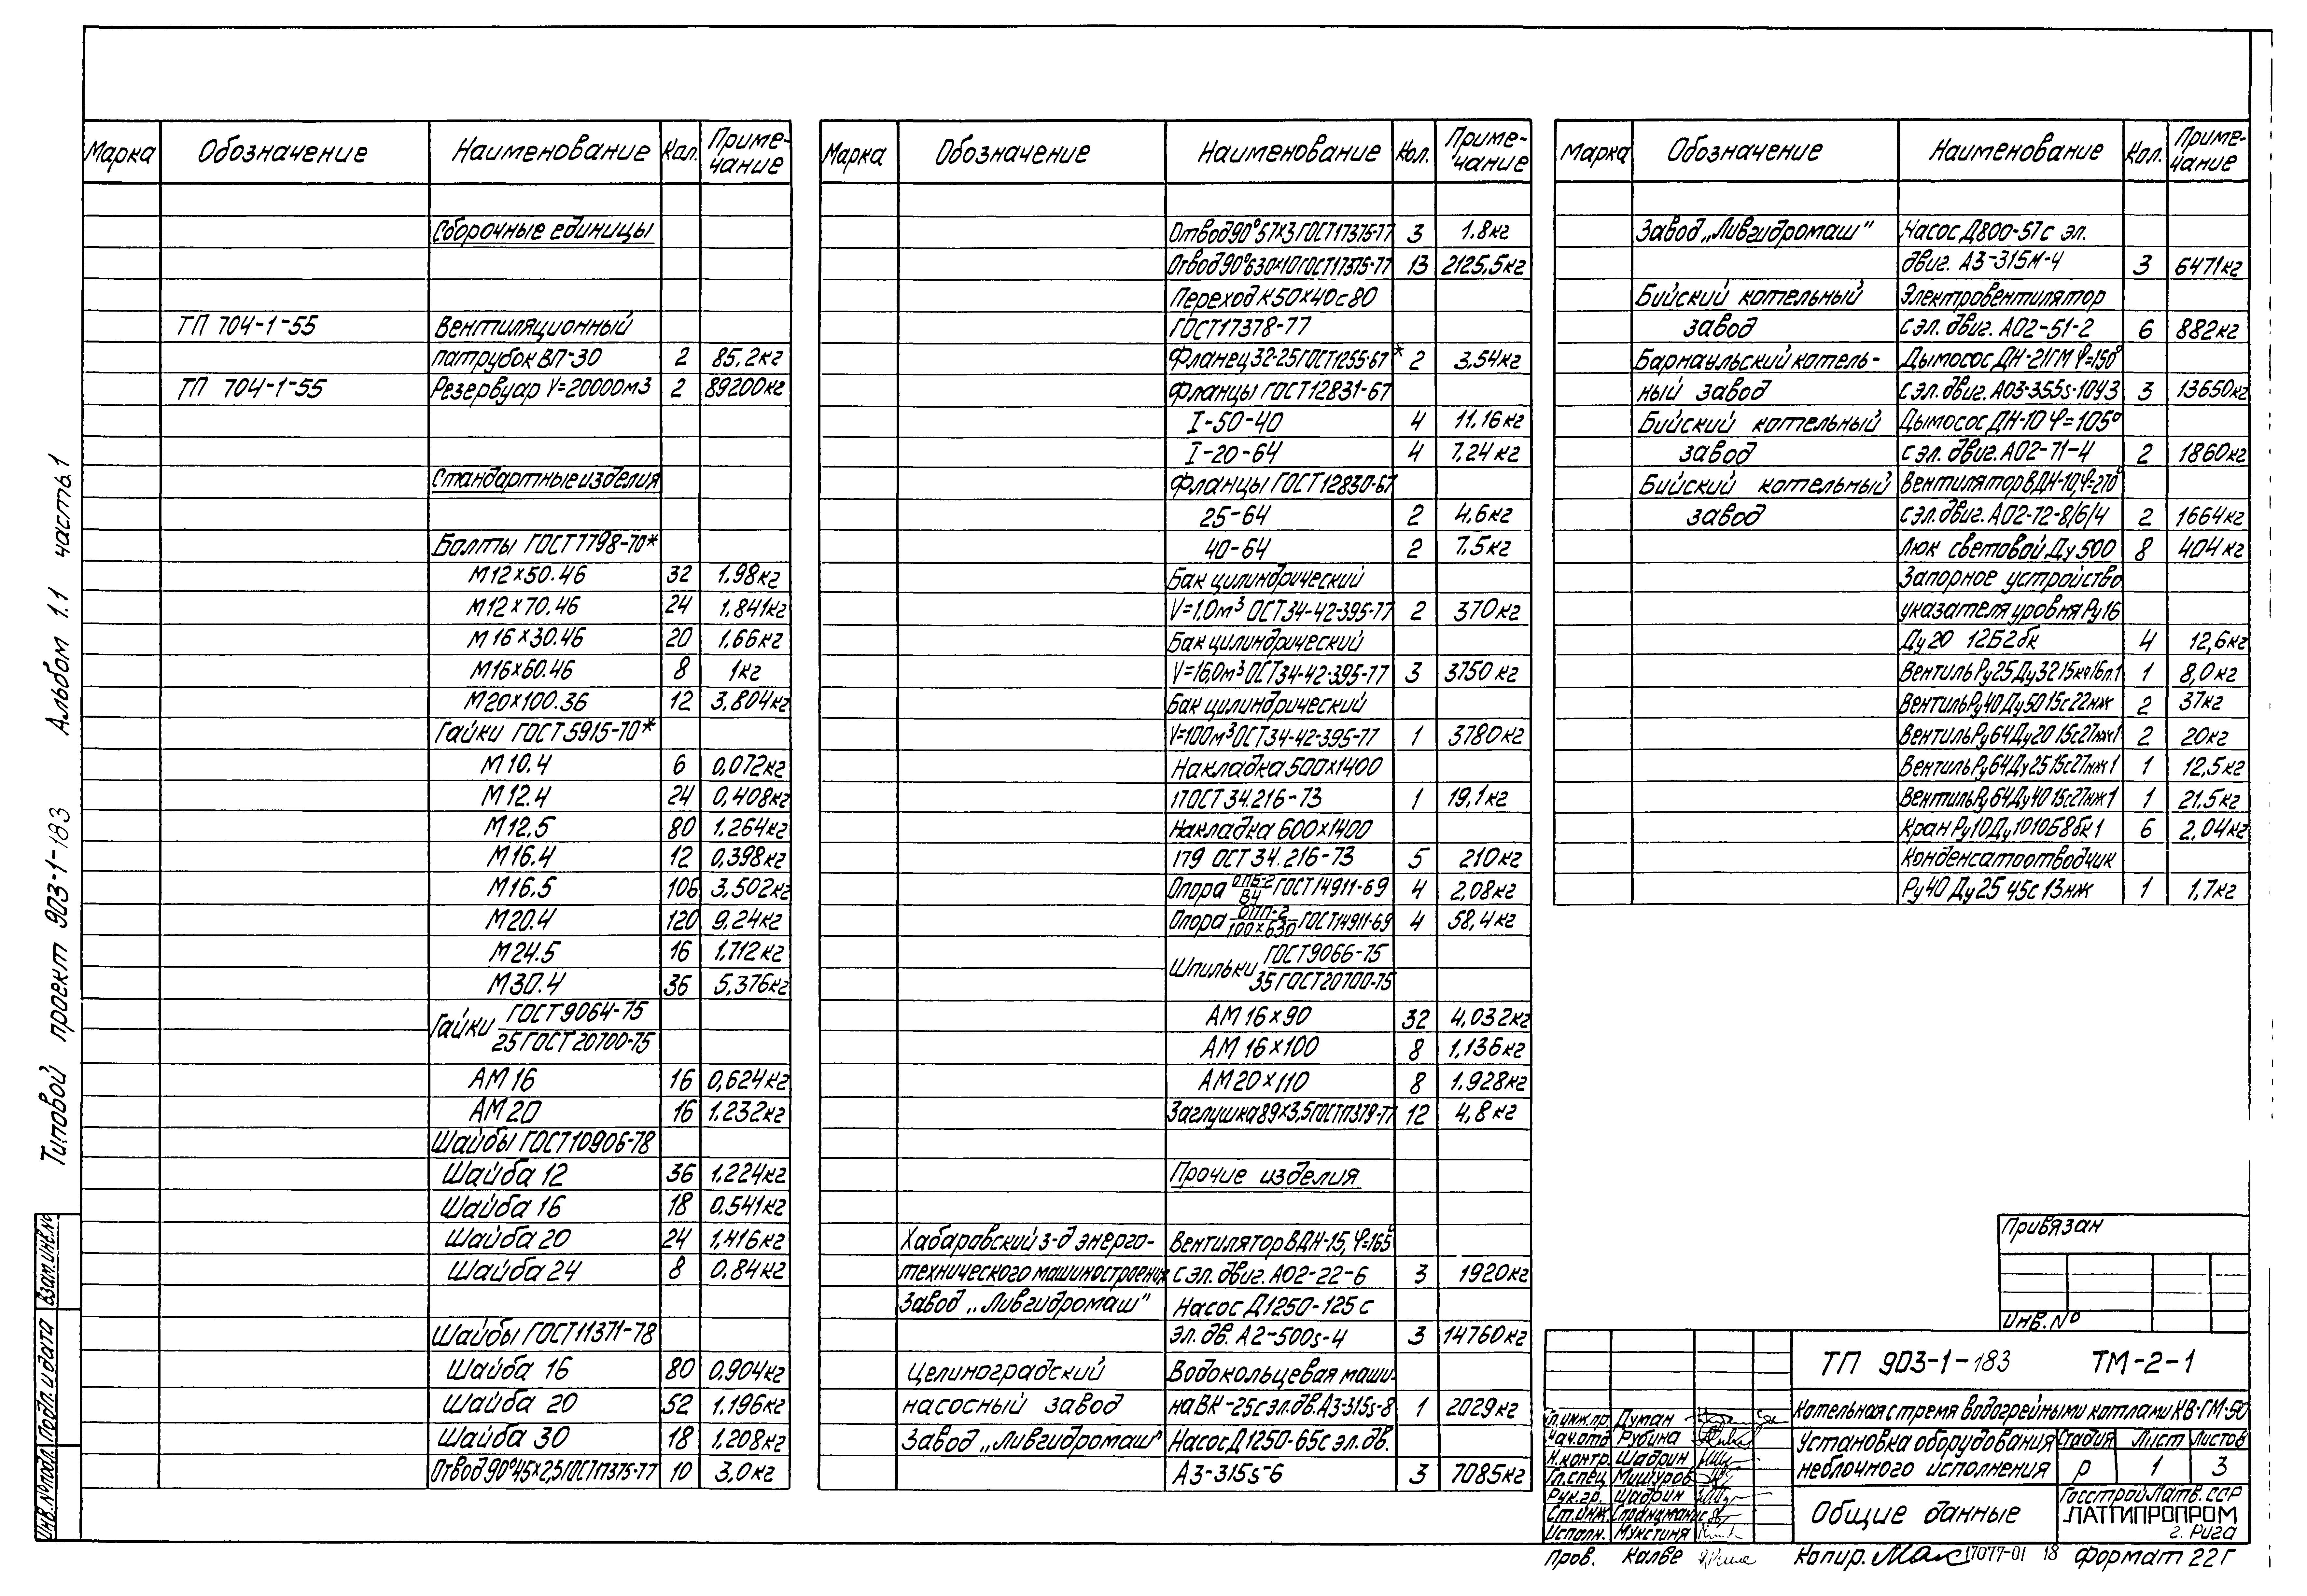 Марка Обозначение Наименование Кол. Приме-чание
Сборочные единицы
ТП 704-1-55 Вентиляционный
патрубок ВП-30 2 85,2кг
ТП 704-1-55 Резервуар V=20000м3 2 89200кг
Стандартные изделия
Болты ГОСТ 7798-70*
М12×50.46 32 1,98кг
М12×70.46 24 1,841кг
М16×30.46 20 1,66кг
М16×60.46 8 1кг
М20×100.36 12 3,804кг
Гайки ГОСТ 5915-70*
М10.4 6 0,072кг
М12.4 24 0,408кг
М12.5 80 1.264кг
М16.4 12 0,398кг
М16.5 106 3.502кг
М20.4 120 9.24кг
М24.5 16 1,712кг
М30.4 36 5,376кг
Гайки ГОСТ 9064-75
25 ГОСТ 20700-75
АМ16 16 0,624кг
АМ20 16 1.232кг
Шайбы ГОСТ 10906-78
Шайба 12 36 1.224кг
Шайба 16 18 0.541кг
Шайба 20 24 1,416кг
Шайба 24 8 0.84кг
Шайбы ГОСТ 11371-78
Шайба 16 80 0.904кг
Шайба 20 52 1.196кг
Шайба 30 18 1,208кг
Отвод 90°45×2,5 ГОСТ 17375-77 10 3,0кг
Марка Обозначение Наименование Кол. Приме-чание
Отвод 90°57×3 ГОСТ 17375-77 3 1.8кг
Отвод 90°630×10 ГОСТ 17375-77 13 2125,5кг
Переход К50×40с80
ГОСТ 17378-77
Фланец 32-25 ГОСТ 1255-67* 2 3,54кг
Фланцы ГОСТ 12831-67
I-50-40 4 11.16кг
I-20-64 4 7.24кг
Фланцы ГОСТ 12830-67
25-64 2 4,6кг
40-64 2 7.5кг
Бак цилиндрический
V=1.0м³ ОСТ 34-42-395-77 2 370кг
Бак цилиндрический
V=16,0м³ ОСТ 34-42-395-77 3 3750кг
Бак цилиндрический
V=100м³ ОСТ 34-42-395-77 1 3780кг
Накладка 500×1400
17 ОСТ 34.216-73 1 19,1кг
Накладка 600×1400
179 ОСТ 34.216-73 5 210кг
Опора ОПБ-2 ГОСТ 14911-69 4 2,08кг
Опора ОПП-2 100×630 ГОСТ 14911-69 4 58,4кг
Шпильки ГОСТ 9066-75
35 ГОСТ 20700-75
АМ 16×90 32 4,032кг
АМ 16×100 8 1.136кг
АМ 20×110 8 1.928кг
Заглушка 89×3,5 ГОСТ 17379-77 12 4,8кг
Прочие изделия
Хабаровский з-д энерго- Вентилятор ВДН-15, φ=165°
технического машиностроения с эл. двиг. АО2-22-6 3 1920кг
Завод „Ливгидромаш" Насос Д1250-125 с
эл. дв. А2-500s-4 3 14760кг
Целиноградский Водокольцевая маши-
насосный завод на ВК-25 с эл.дв. А3-315s-8 1 2029кг
Завод „Ливгидромаш" Насос Д1250-65 с эл. дв.
А3-315s-6 3 7085кг
Марка Обозначение Наименование Кол. Приме-чание
Завод „Ливгидромаш" Насос Д800-57 с эл.
двиг. А3-315М-4 3 6471кг
Бийский котельный Электровентилятор
завод с эл. двиг. АО2-51-2 6 882кг
Барнаульский котель- Дымосос ДН-21ГМ φ=150°
ный завод с эл. двиг. АО3-355s-10У3 3 13650кг
Бийский котельный Дымосос ДН-10 φ=105°
завод с эл. двиг. АО2-71-4 2 1860кг
Бийский котельный Вентилятор ВДН-10, φ=270°
завод с эл. двиг. АО2-72-8/6/4 2 1664кг
Люк световой Ду 500 8 404кг
Запорное устройство
указателя уровня Ру16
Ду20 12Б2бк 4 12,6кг
Вентиль Ру25 Ду32 15кч16п.1 1 8,0кг
Вентиль Ру40 Ду50 15с22нж 2 37кг
Вентиль Ру64 Ду20 15с27нж1 2 20кг
Вентиль Ру64 Ду25 15с27нж1 1 12,5кг
Вентиль Ру64 Ду40 15с27нж1 1 21.5кг
Кран Ру10 Ду10 10Б8бк1 6 2,04кг
Конденсатоотводчик
Ру40 Ду25 45с13нж 1 1,7кг
Типовой проект 903-1-183 Альбом 1.1 часть.1
Инв.№подл. Подп. и дата Взам.инв.№
Привязан
Инв. №
ТП 903-1-183 ТМ-2-1
Котельная с тремя водогрейными котлами КВ-ГМ-50
Установка оборудования
неблочного исполнения
Стадия Лист Листов
р 1 3
Общие данные
Госстрой Латв. ССР
ЛАТГИПРОПРОМ
г. Рига
Гл.инж.пр. Думан
Нач.отд Рубина
Н.контр. Шадрин
Гл.спец Мишуров
Рук.гр. Шадрин
Ст.инж.
Исполн. Мукстиня
Пров. Калве
Копир. Мак 17077-01 18 Формат 22Г